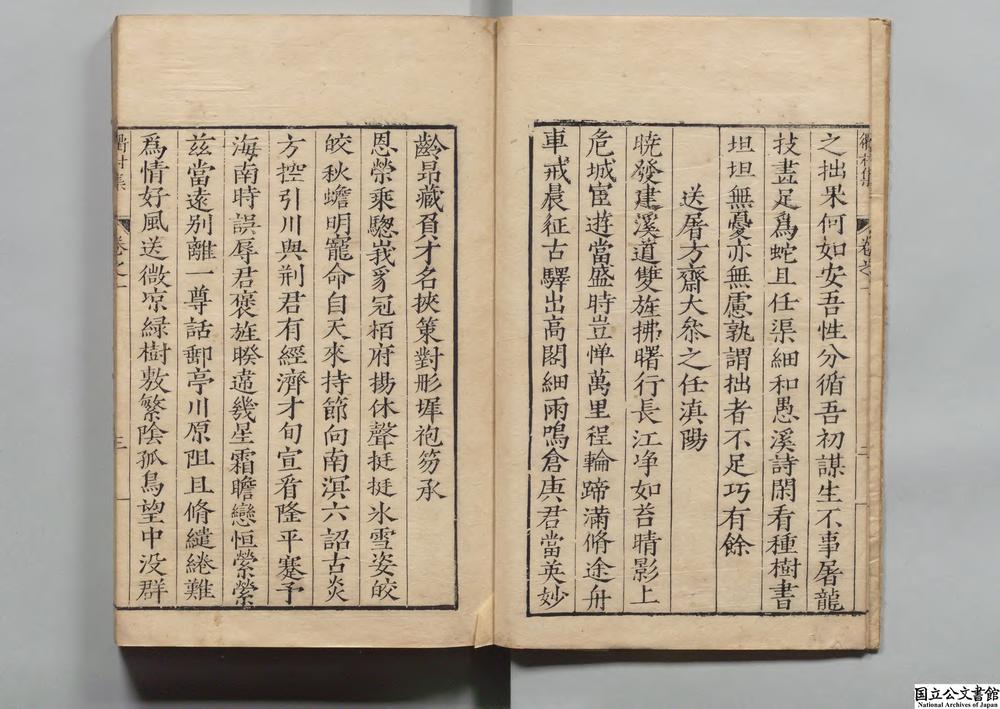 之拙果何如安吾性分循吾初謀生不事屠龍
技畫足爲蛇且任渠細和愚溪詩閑看種樹書
坦坦無憂亦無慮孰謂拙者不足巧有餘
送屠方齋大叅之任滇陽
曉發建溪道雙旌拂曙行長江净如苔晴影上
危城宦遊當盛時豈惮萬里程輪蹄滿脩途舟
車戒晨征古驛出高閣細雨鳴倉庚君當英妙
齡昂藏負才名挾策對彤墀袍笏承
恩榮乘驄峩豸冠栢府揚休聲挺挺氷雪姿皎
皎秋蟾明寵命自天來持節向南溟六詔古炎
方控引川與荆君有經濟才旬宣看隆平蹇予
海南時誤辱君褒旌暌違幾星霜瞻戀恒縈縈
兹當遠别離一尊話郵亭川原阻且脩繾綣難
爲情好風送微凉緑樹敷繁陰孤鳥望中没群
村集
卷之一
三
国立公文書館
National Archives of Japan